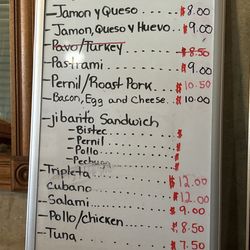 -Jamon y Queso...$8.00
-Jamon, Queso y Huevo..$9.00
-Pavo/Turkey.......$8.50
-Pastrami..........$9.00
-Pernil/Roast Pork..$10.50
-Bacon, Egg and Cheese..$10.00
-jibarito Sandwich
-Bistec.......$
-Pernil.......$
-Pollo........$
-Pechuga......$
-Tripleta.......$12.00
cubano.........$12.00
-Salami........$9.00
-Pollo/chicken..$8.50
-Tuna..........$7.50